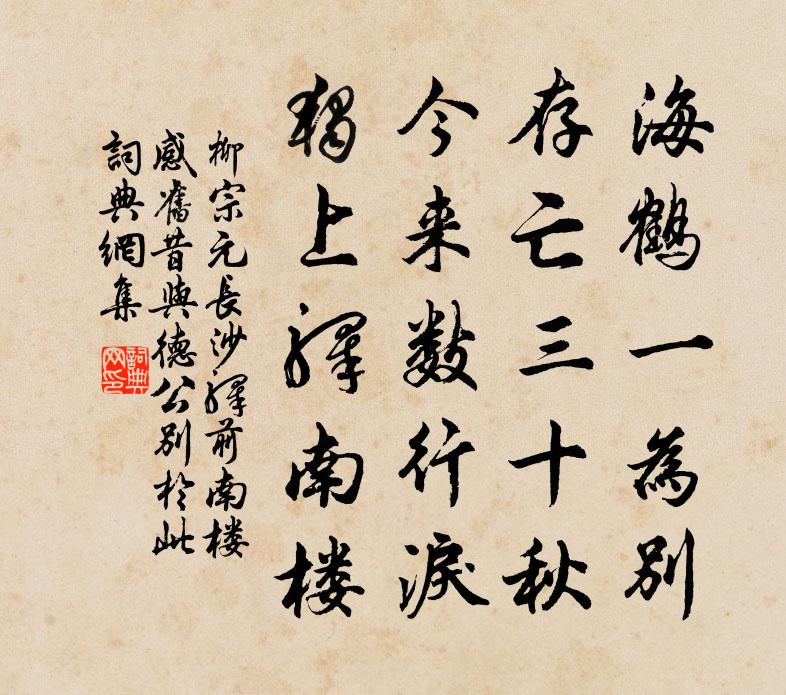 海鶴一為別
存亡三十秋
今来數行淚
獨上驛南楼
柳宗元長沙驛前南楼
感舊昔與德公別於此
詞典網集
詞典网印